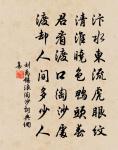 汴水東流虎眼紋
清淮曉色鴨頭春
君看渡口淘沙處
渡却人間多少人
劉禹錫浪淘沙詞